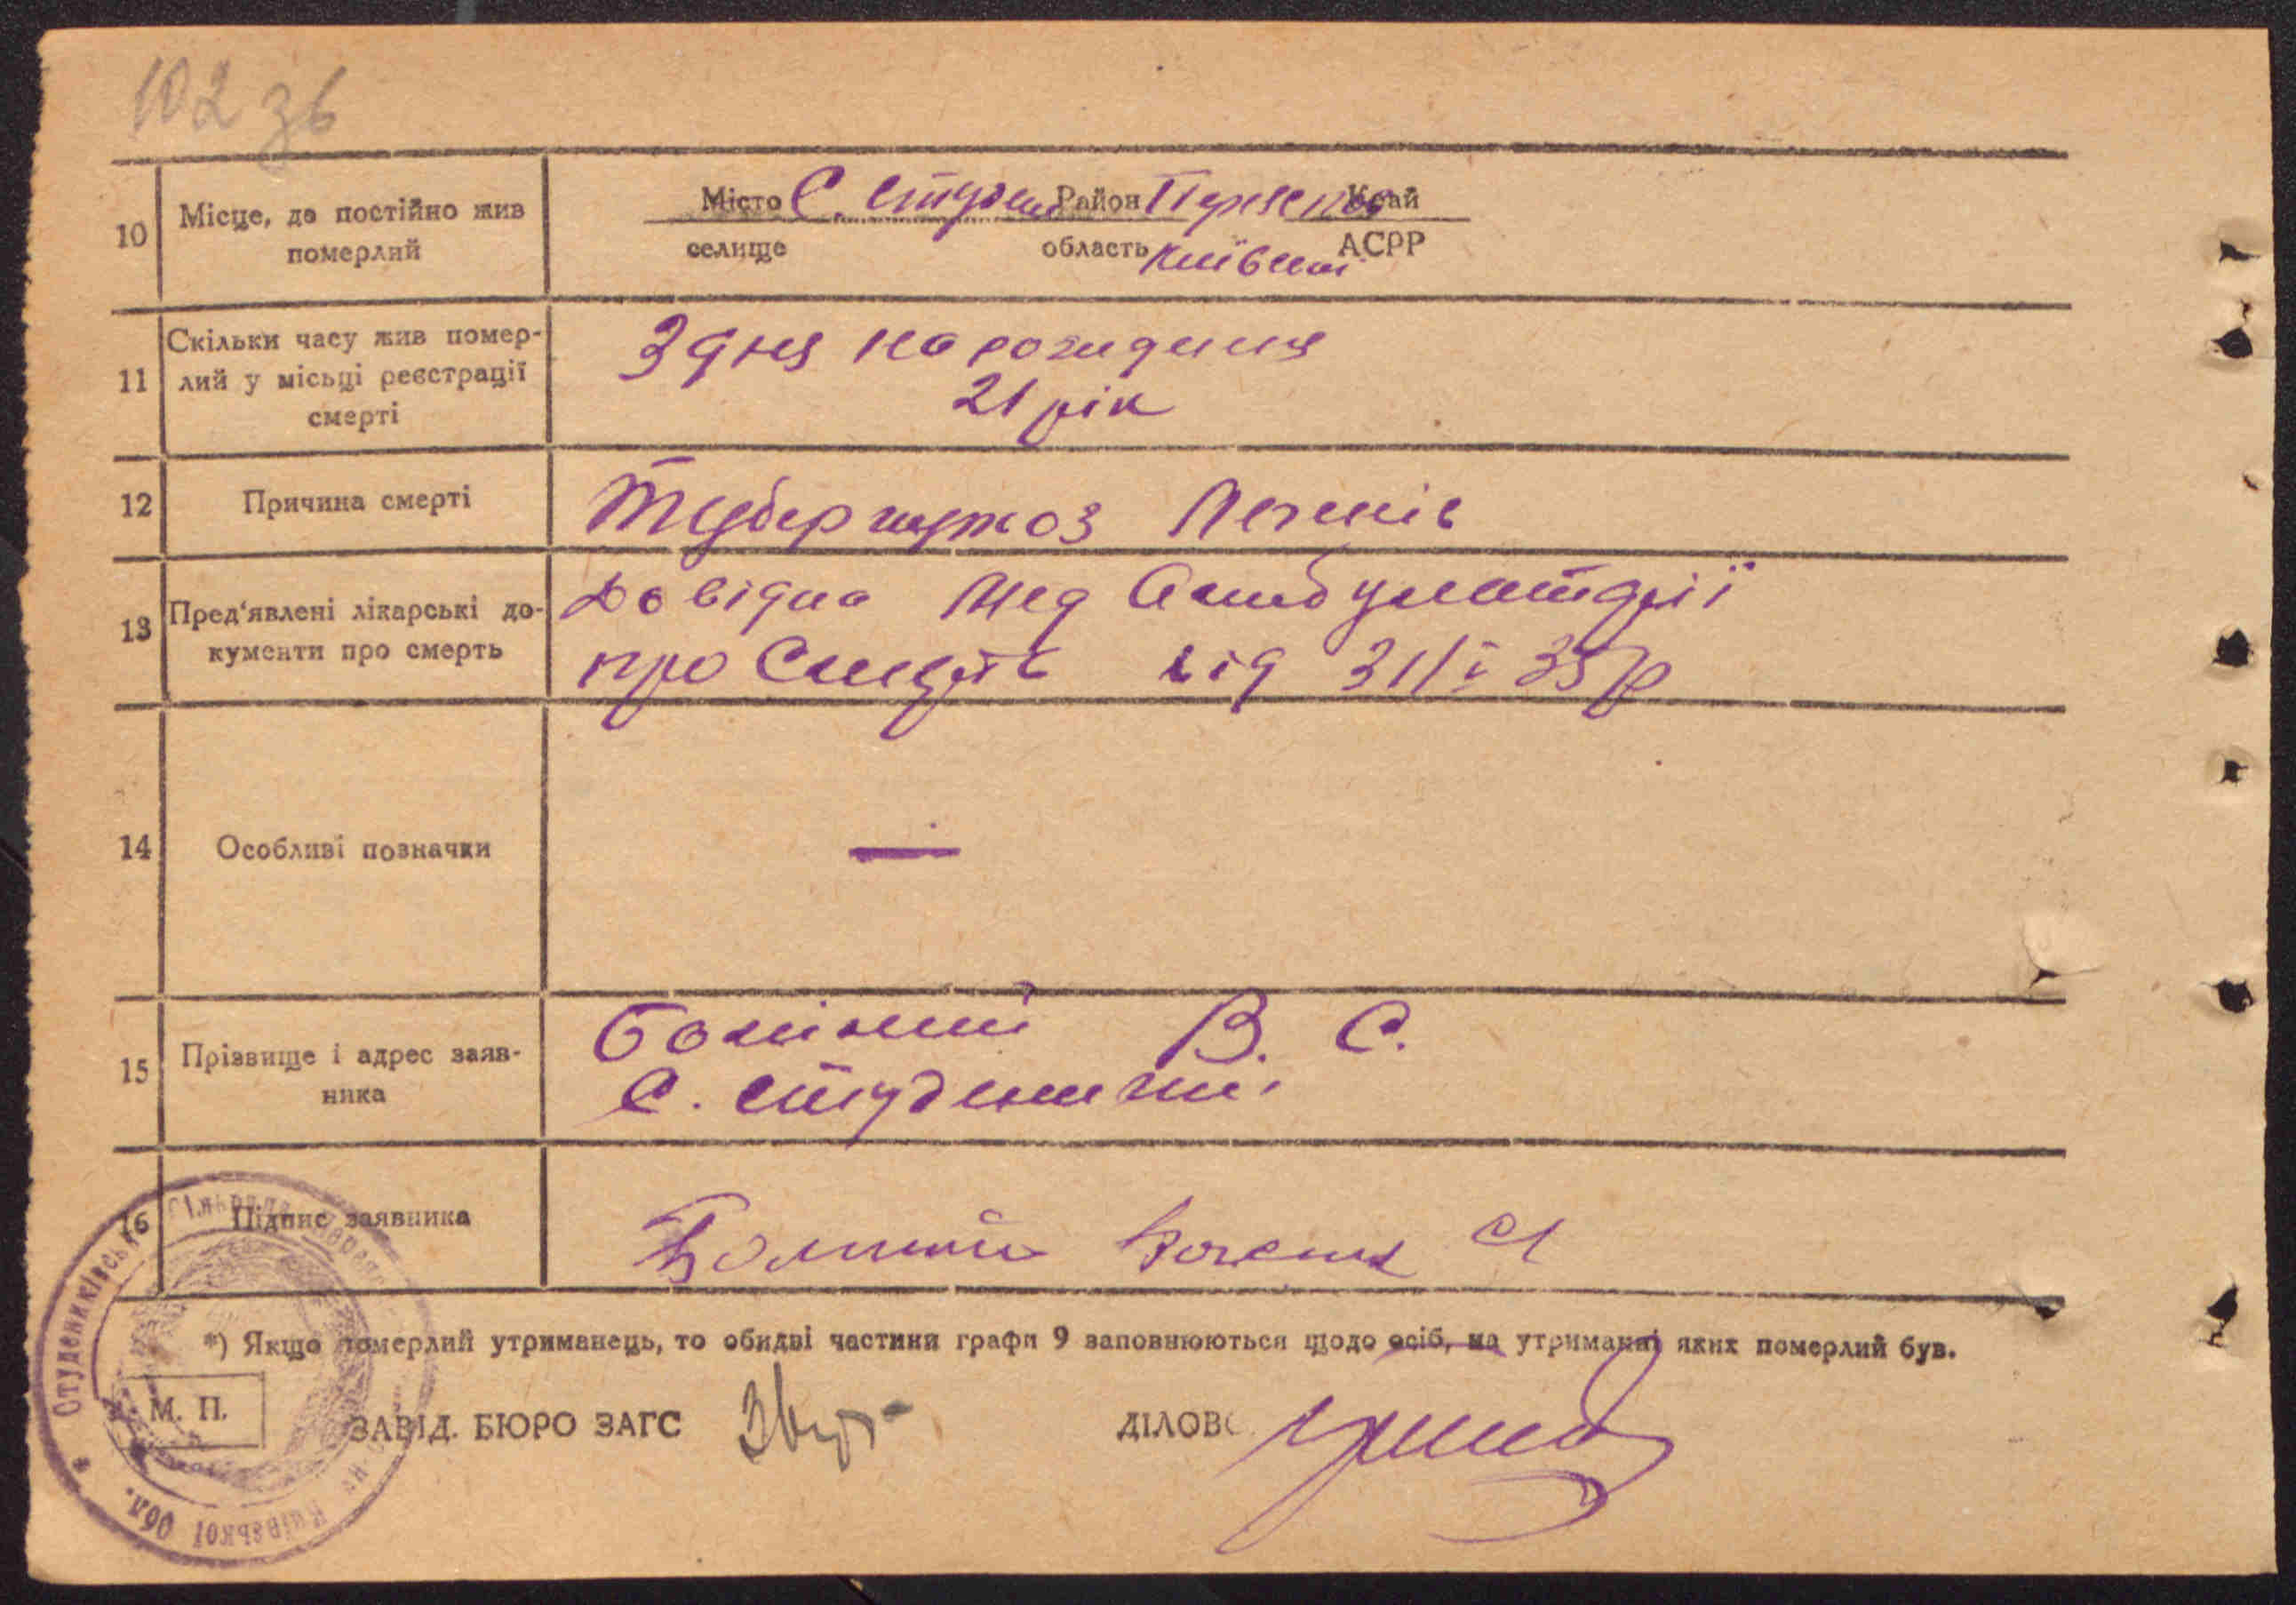 102 зв
10 Місце, де постійно жив померлий
Місто С. Студен Район Переяслов Край
селище область Київськ АСРР
11 Скільки часу жив помер-
лий у місьці реєстрації
смерті
З дня народження
21 рік
12 Причина смерті
Туберкульоз Легенів
13 Пред'явлені лікарські до-
кументи про смерть
Довідка Мед Амбулаторії
про Смерть від 31/V 35 р
14 Особливі позначки
—
15 Прізвище і адрес заяв-
ника
В. С.
С. Студеники
16 Підпис заявника
*) Якщо померлий утриманець, то обидві частини графи 9 заповнюються щодо осіб, на утриманні яких померлий був.
М. П.
ЗАВІД. БЮРО ЗАГС
ДІЛОВ
Студениківська Сільрада
Київської Обл.